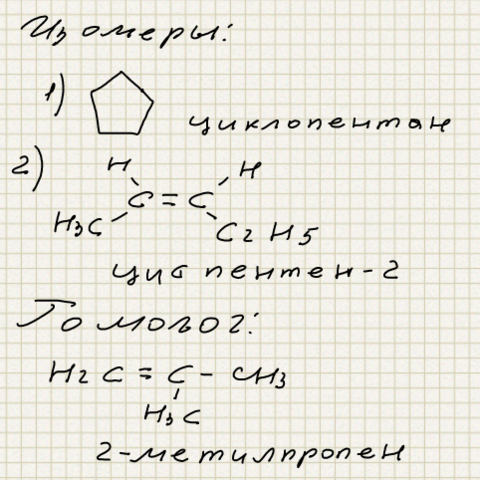 Изомеры:
1)
циклопентан
2) H H
C = C
H3C C2H5
цис пентен-2
Гомолог:
H2C = C - CH3
H3C
2-метилпропен